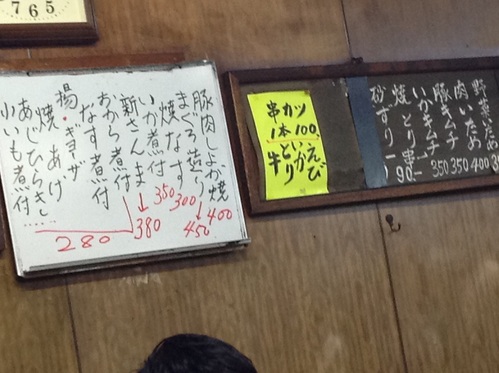 7 6 5
豚肉しょが焼
400
まぐろ造り
450
焼なす
300
いか煮付
350
新さんま
380
おから煮付
なす煮付
揚・ギョーザ
焼あげ
あじひらき
小いも煮付
280
串カツ
1本100
えび
いか
とり
牛
野菜ため
400
肉いため
350
豚キムチ
350
いかキムチ
350
焼とり串
90
砂ずり